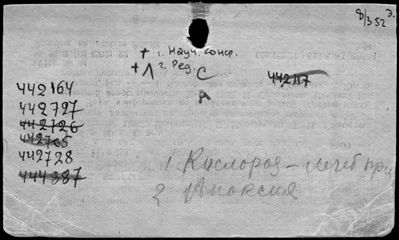 8/3 52 Э.
+ 1. Науч. конс.
+ Л 2. Ред. С
442117
А
442164
442727
442726
442705
442728
444387
1. Кислород – леч. пр.
2 Аноксия